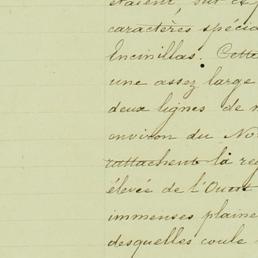 étaient, sur
caractères spécia
Encinillas. Cette
une assez large
deux lignes de
environ du No
rattachent la re
élevée de l'Ouest
immenses plaine
desquelles coule